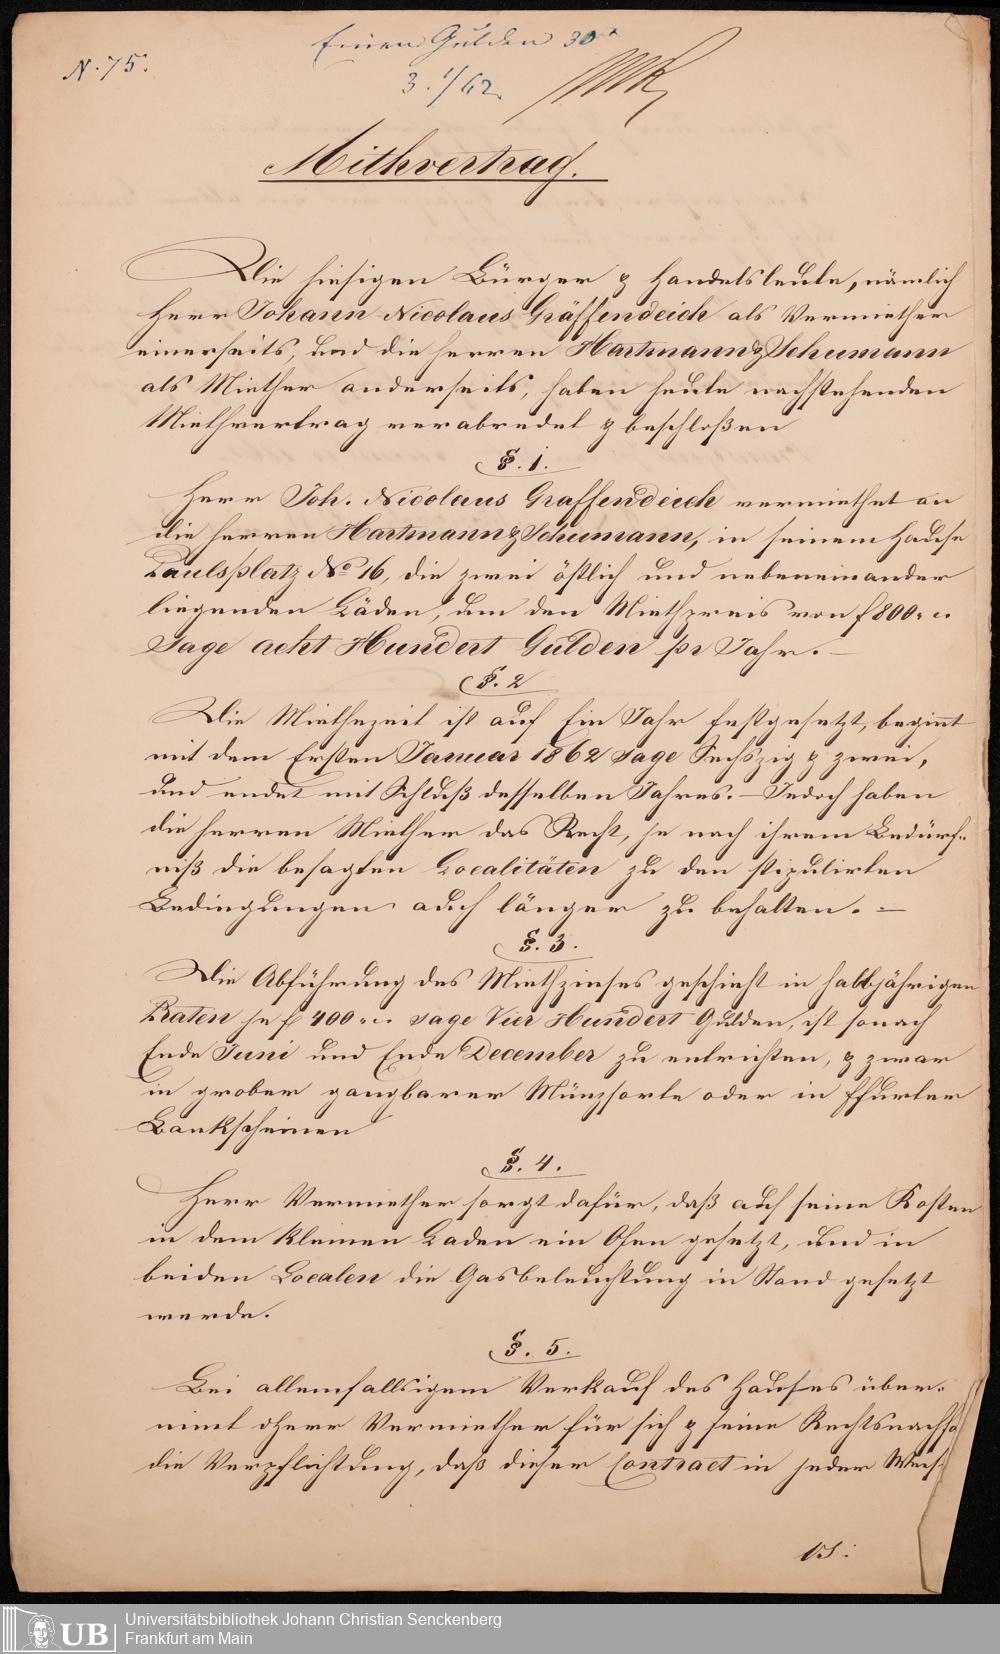 N. 75.
Einen Gulden 30x
3. 1/62.
Miethvertrag.
Die hiesigen Bürger & Handelsleute, nämlich
Herr Johann Nicolaus Gräffendeich als Vermiether
einerseits, und die Herren Hartmann & Schumann
als Miether anderseits, haben heute nachstehenden
Miethvertrag verabredet & beschloßen
§. 1.
Herr Joh. Nicolaus Graffendeich vermiethet an
die Herren Hartmann & Schumann, in seinem Hause
Paulsplatz No 16, die zwei östlich und nebeneinander
liegenden Läden, um den Miethpreis von f 800. "
Sage acht Hundert Gulden pr Jahr. —
§. 2
Die Miethezeit ist auf Ein Jahr festgesetzt, beginnt
mit dem Ersten Januar 1862 sage Sechszig & zwei,
und endet mit Schluß desselben Jahres. — Jedoch haben
die Herren Miether das Recht, je nach ihrem Bedürf-
niß die besagten Localitäten zu den stipulirten
Bedingungen auch länger zu behalten. =
§. 3.
Die Abführung des Miethzinses geschieht in halbjährigen
Raten je f 400. " sage Vier Hundert Gulden, ist sonach
Ende Juni und Ende December zu entrichten, & zwar
in grober gangbarer Münzsorte oder in Ffurter
Bankscheinen
§. 4.
Herr Vermiether sorgt dafür, daß auf seine Kosten
in dem kleinen Laden ein Ofen gesetzt, und in
beiden Localen die Gasbeleuchtung in Stand gesetzt
werde.
§. 5.
Bei allemfallsigem Verkauf des Hauses über-
nimt Herr Vermiether für sich & seine Rechtsnachfo
die Verpflichtung, daß dieser Contract in jeder Weis-
UB
Universitätsbibliothek Johann Christian Senckenberg
Frankfurt am Main